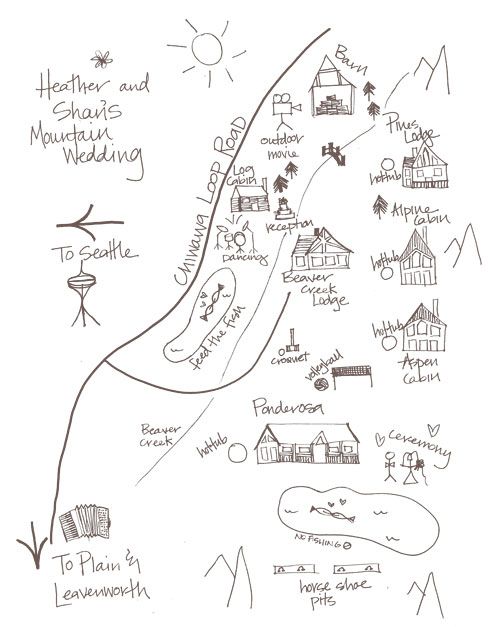 Heather and
Shan's
Mountain
Wedding
To Seattle
Chiwawa Loop Road
Barn
outdoor
movie
Pines
Lodge
hottub
Log
Cabin
reception
Dancing
Alpine
Cabin
hottub
Beaver
Creek
Lodge
feed the fish
hottub
Aspen
Cabin
croquet
volleyball
Ponderosa
Beaver
Creek
hottub
Ceremony
NO FISHING
To Plain &
Leavenworth
horse shoe
pits